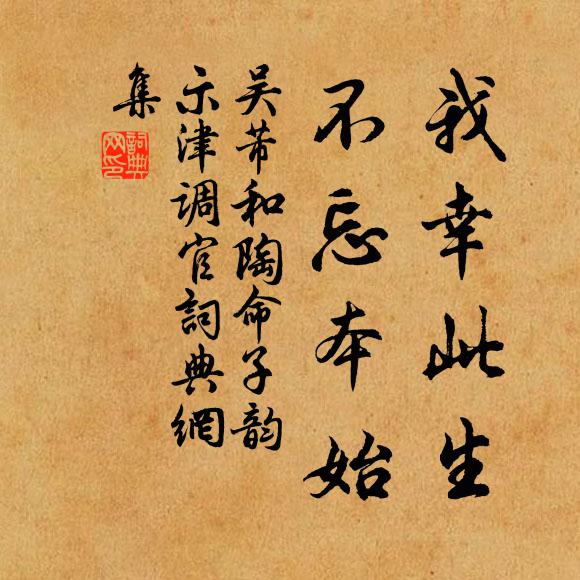 我幸此生
不忘本始
吴芾和陶命子韵
示津调官詞典網
集
詞典網印